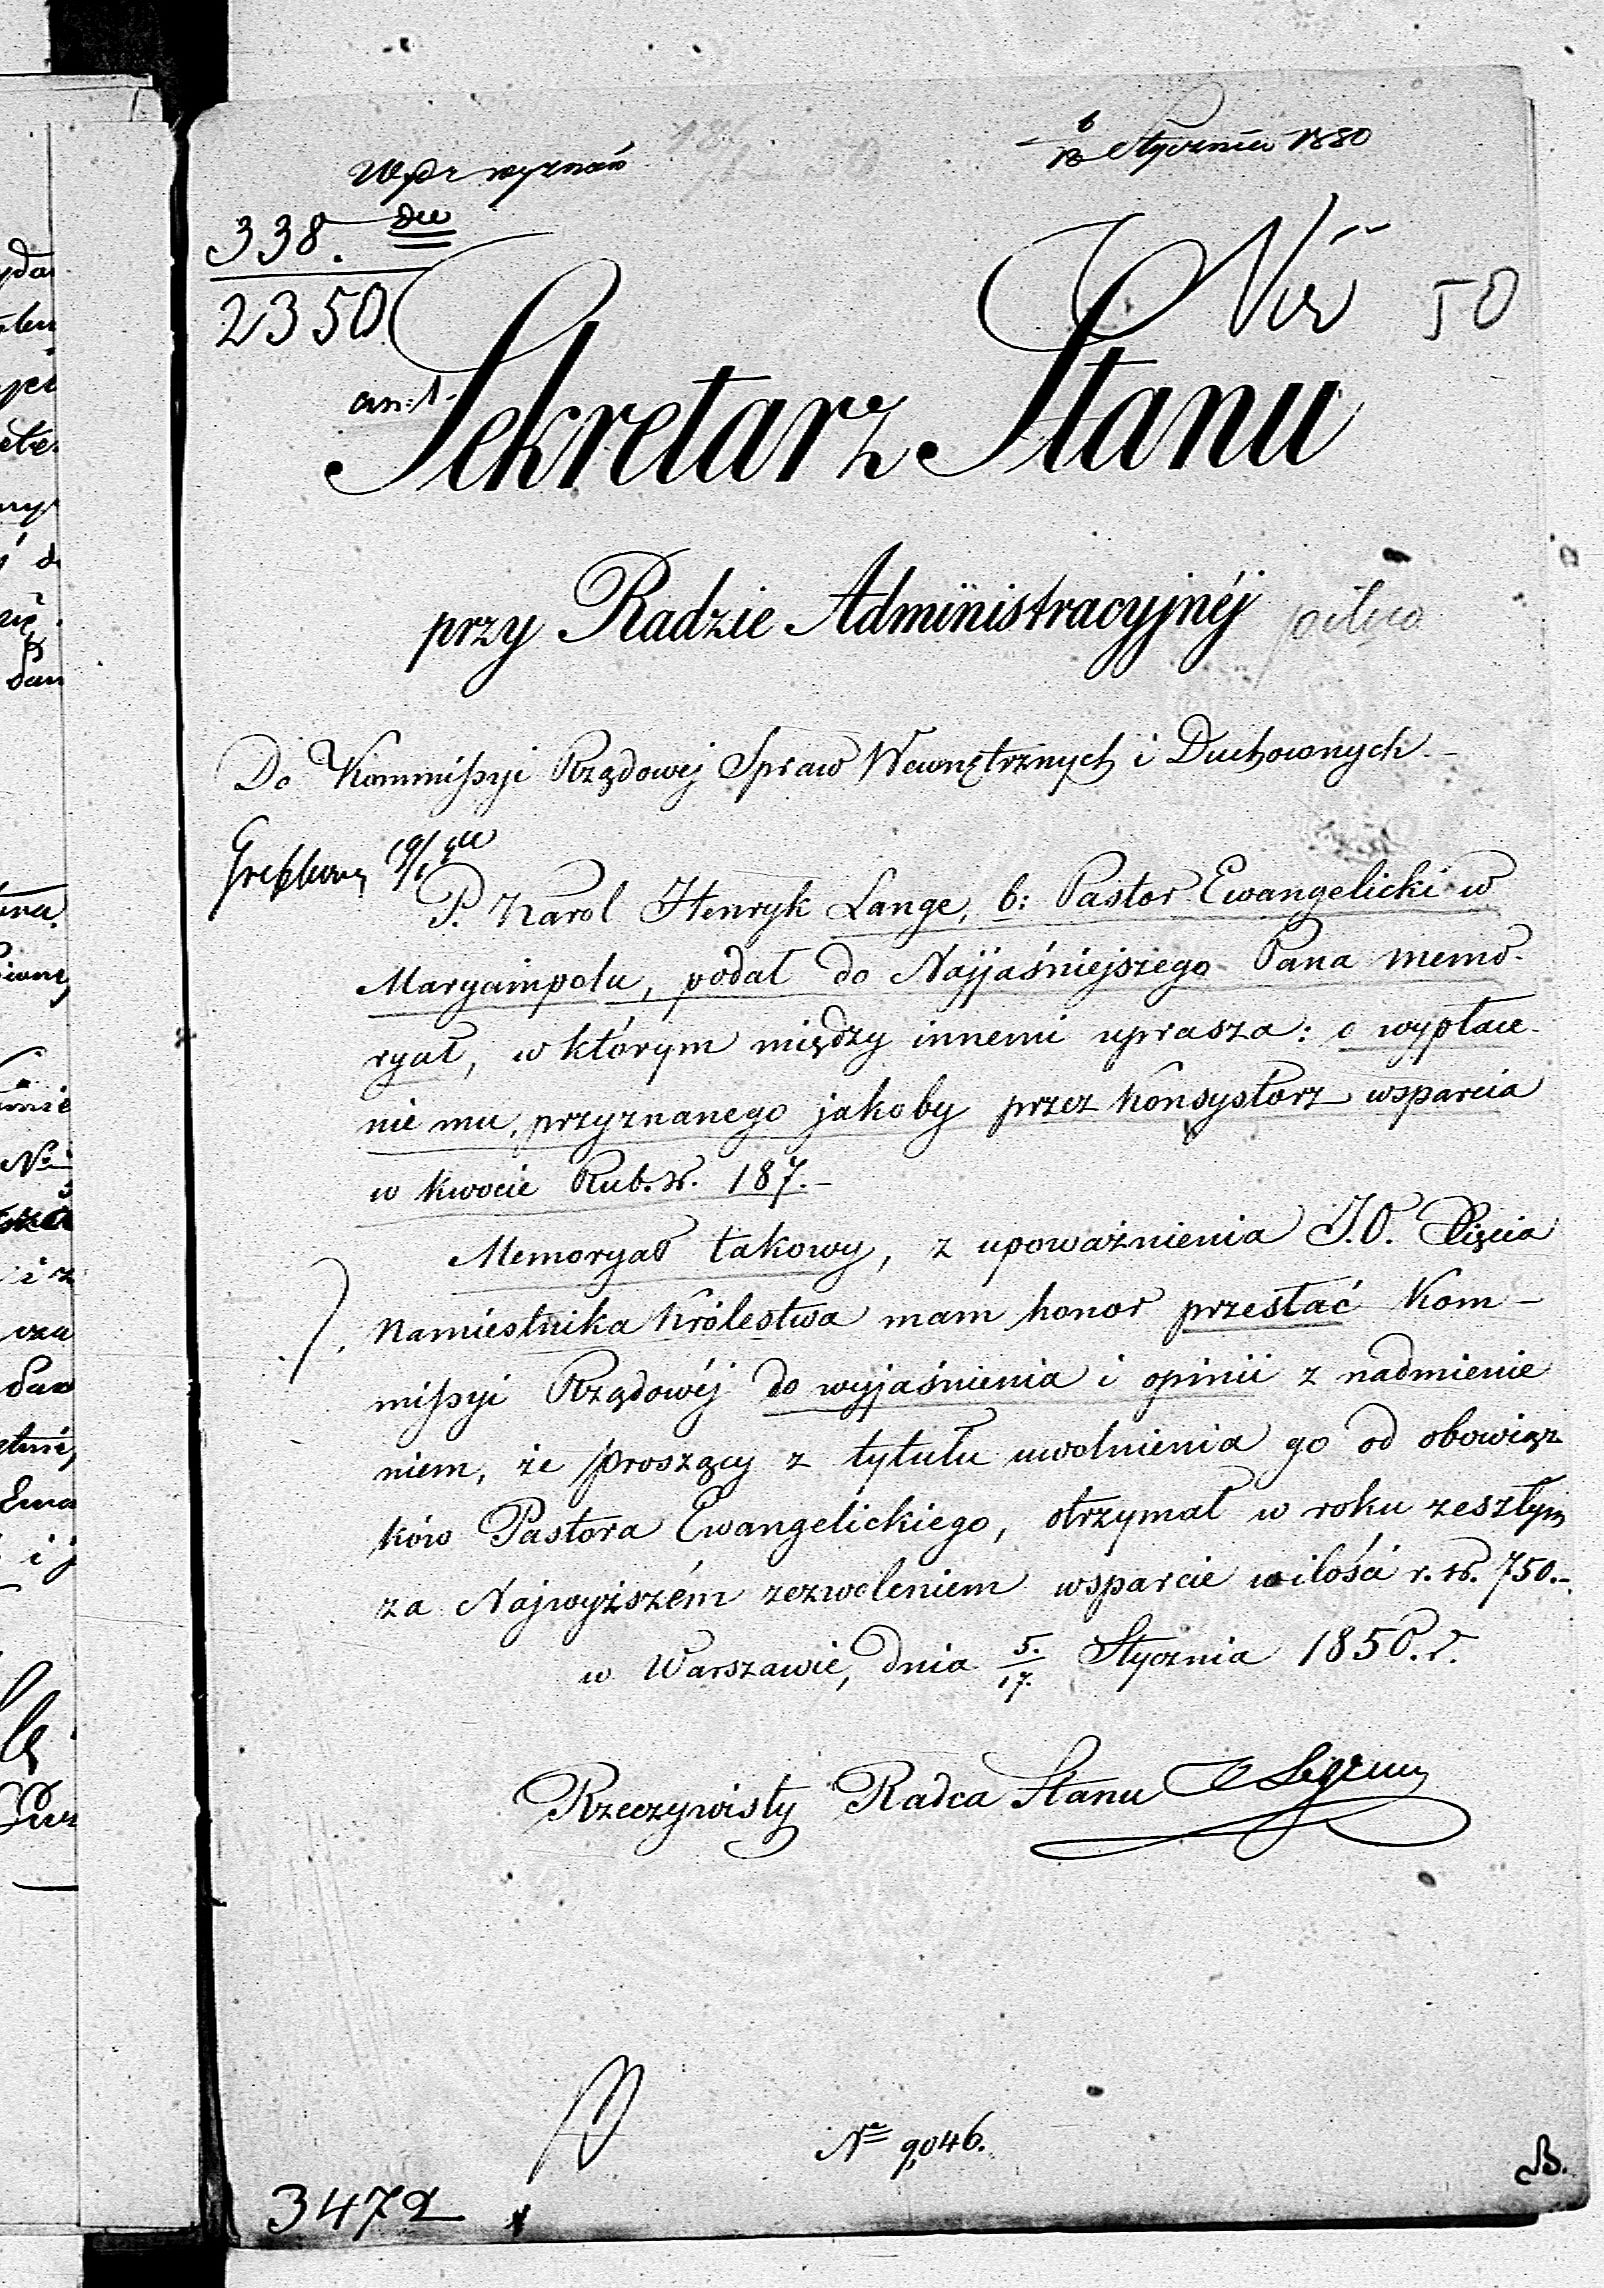 6/18 Stycznia 1850
Wydz wyznań
338.
2350
50
an: 1.
Sekretarz Stanu
przy Radzie Administracyjnéj
pilno
Do Kommißyi Rządowej Spraw Wewnętrznych i Duchownych.
19/1
P. Karol Henryk Lange, b: Pastor Ewangelicki w
Maryampolu, podał do Najjaśniejszego Pana memo-
ryał, w którym między innemi uprasza: o wypłace-
nie mu, przyznanego jakoby przez Konsystorz wsparcia
w kwocie Rub. sr. 187.-
Memoryał takowy, z upoważnienia J.O. Xięcia
Namiestnika Królestwa mam honor przesłać Kom-
mißyi Rządowéj do wyjaśnienia i opinii z nadmienie
niem, że proszący z tytułu uwolnienia go od obowiąz
ków Pastora Ewangelickiego, otrzymał w roku zeszłym
za Najwyższém zezwoleniem wsparcie w ilości r. sr. 750.-
w Warszawie, dnia 5./17. Stycznia 1850. r.
Rzeczywisty Radca Stanu
№ 9,046.
B.
3472